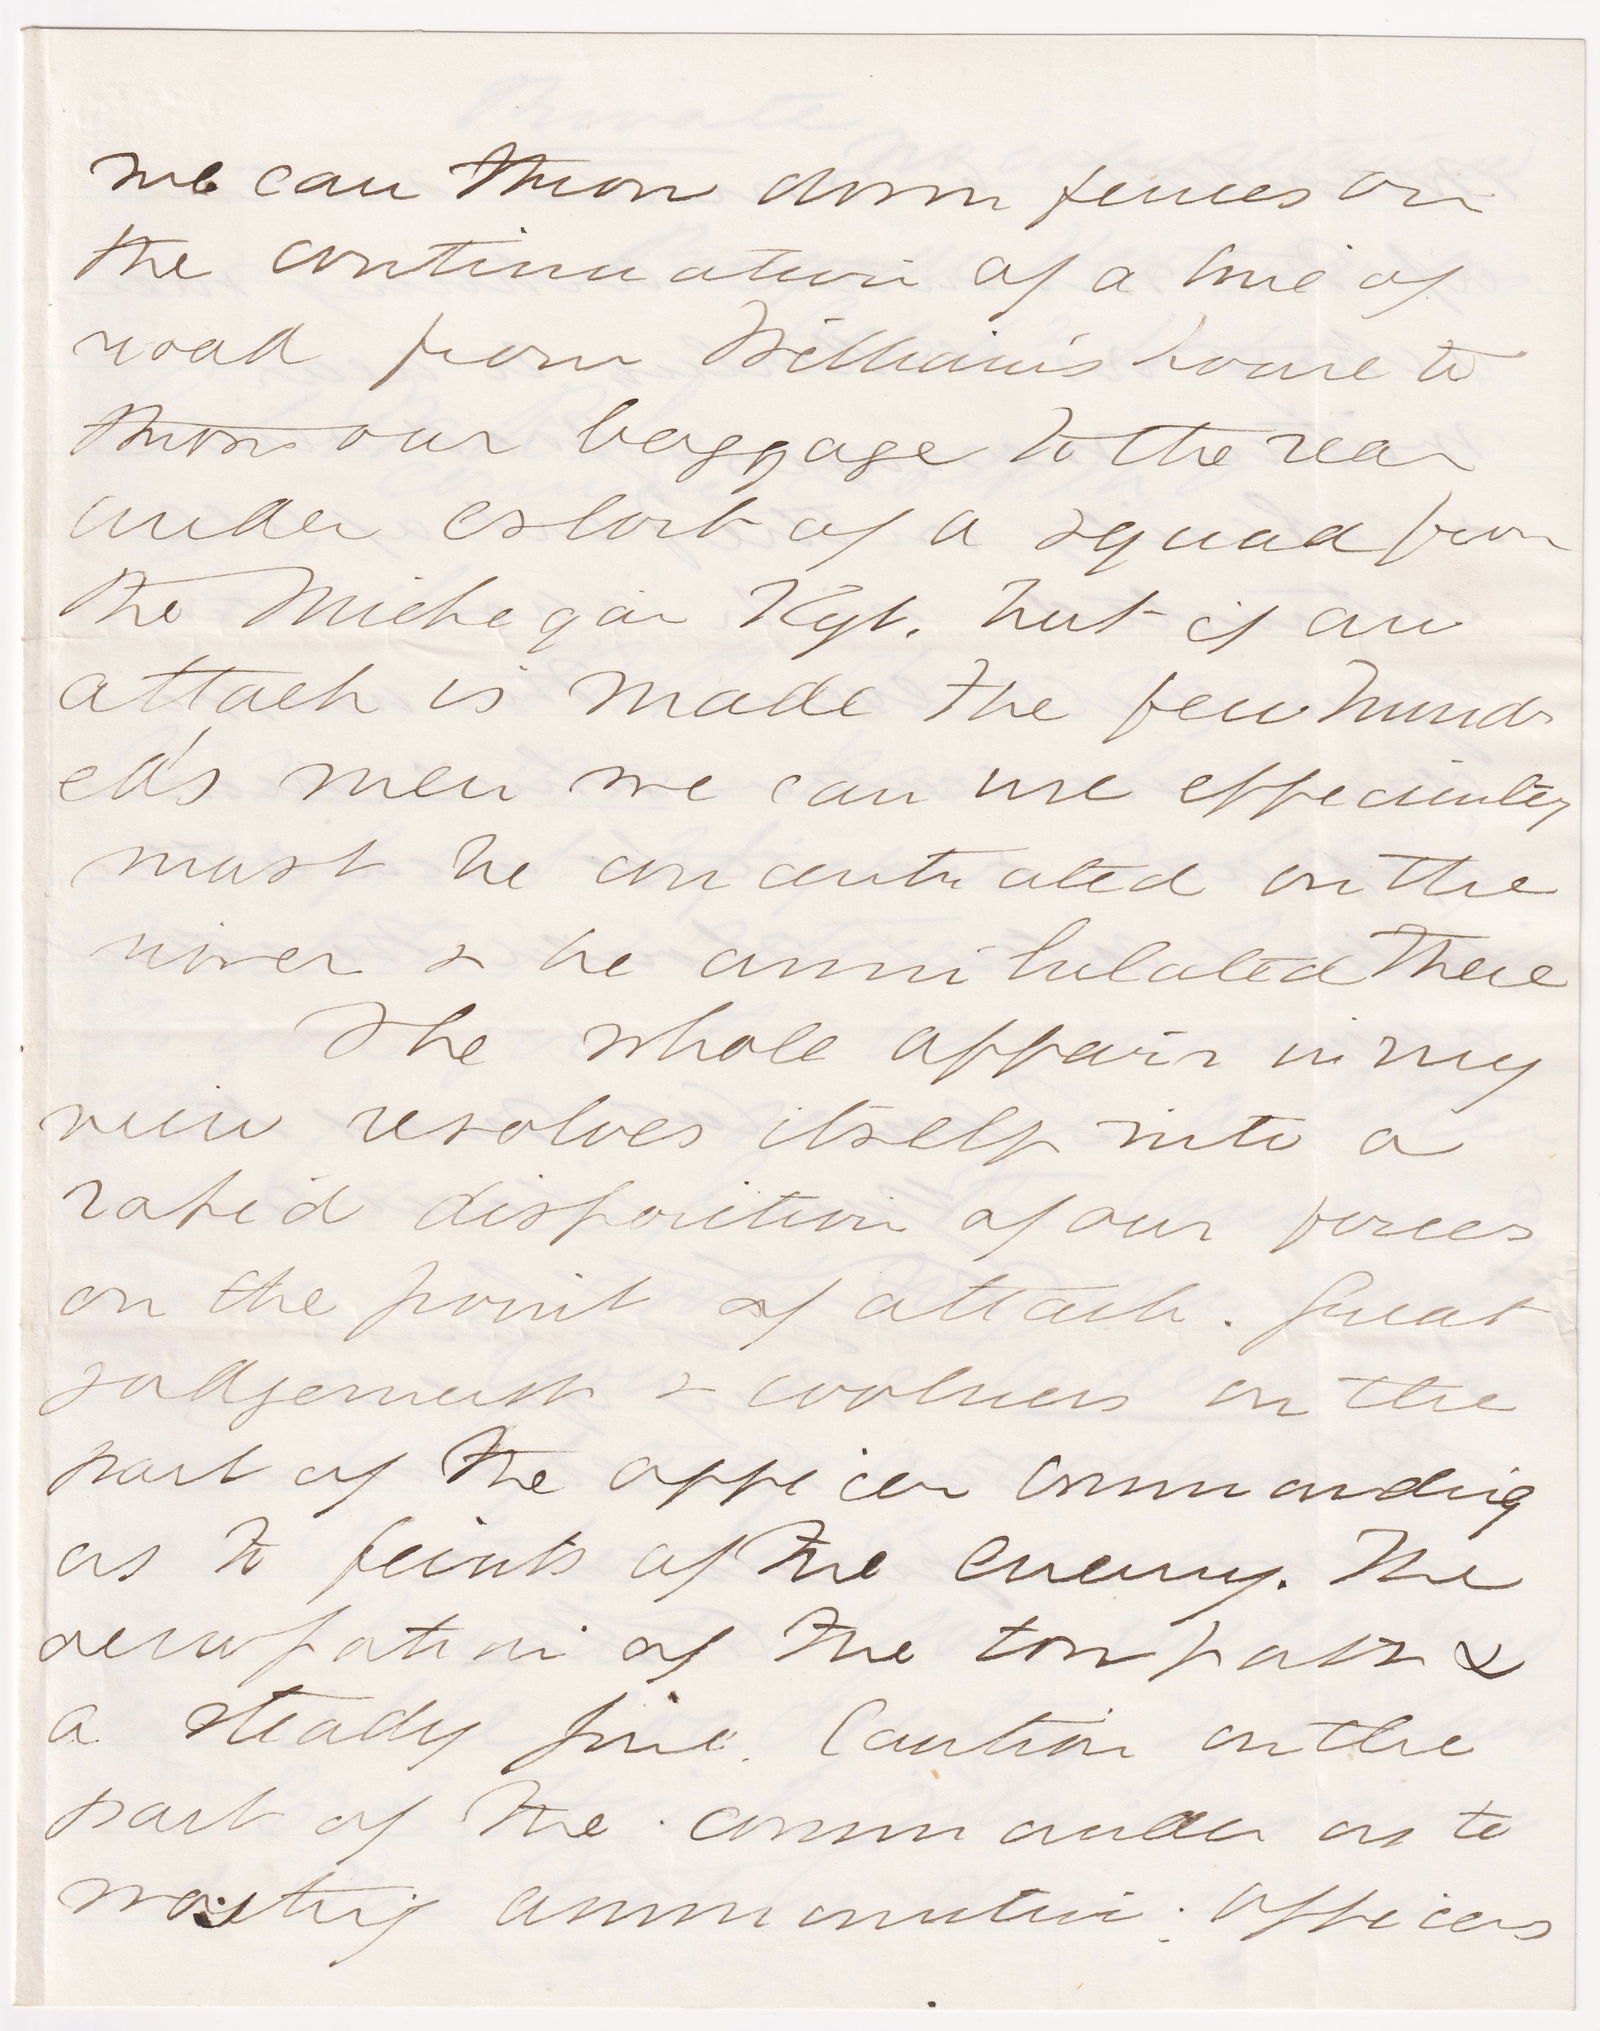 we can throw down fences on
the continuation of a line of
road from William's house to
throw our baggage to the rear
under escort of a squad from
the Michegan Regt. but if an
attack is made the few hundr
ed's men we can use efficiently
must be concentrated on the
river & be annihilated there
The whole affair in my
view resolves itself into a
rapid disposition of our forces
on the point of attack. Great
judgement & coolness on the
part of the officer commanding
as to feints of the enemy. The
occupation of the tow path &
a steady fire. Caution on the
part of the commander as to
wasting ammunition; officers